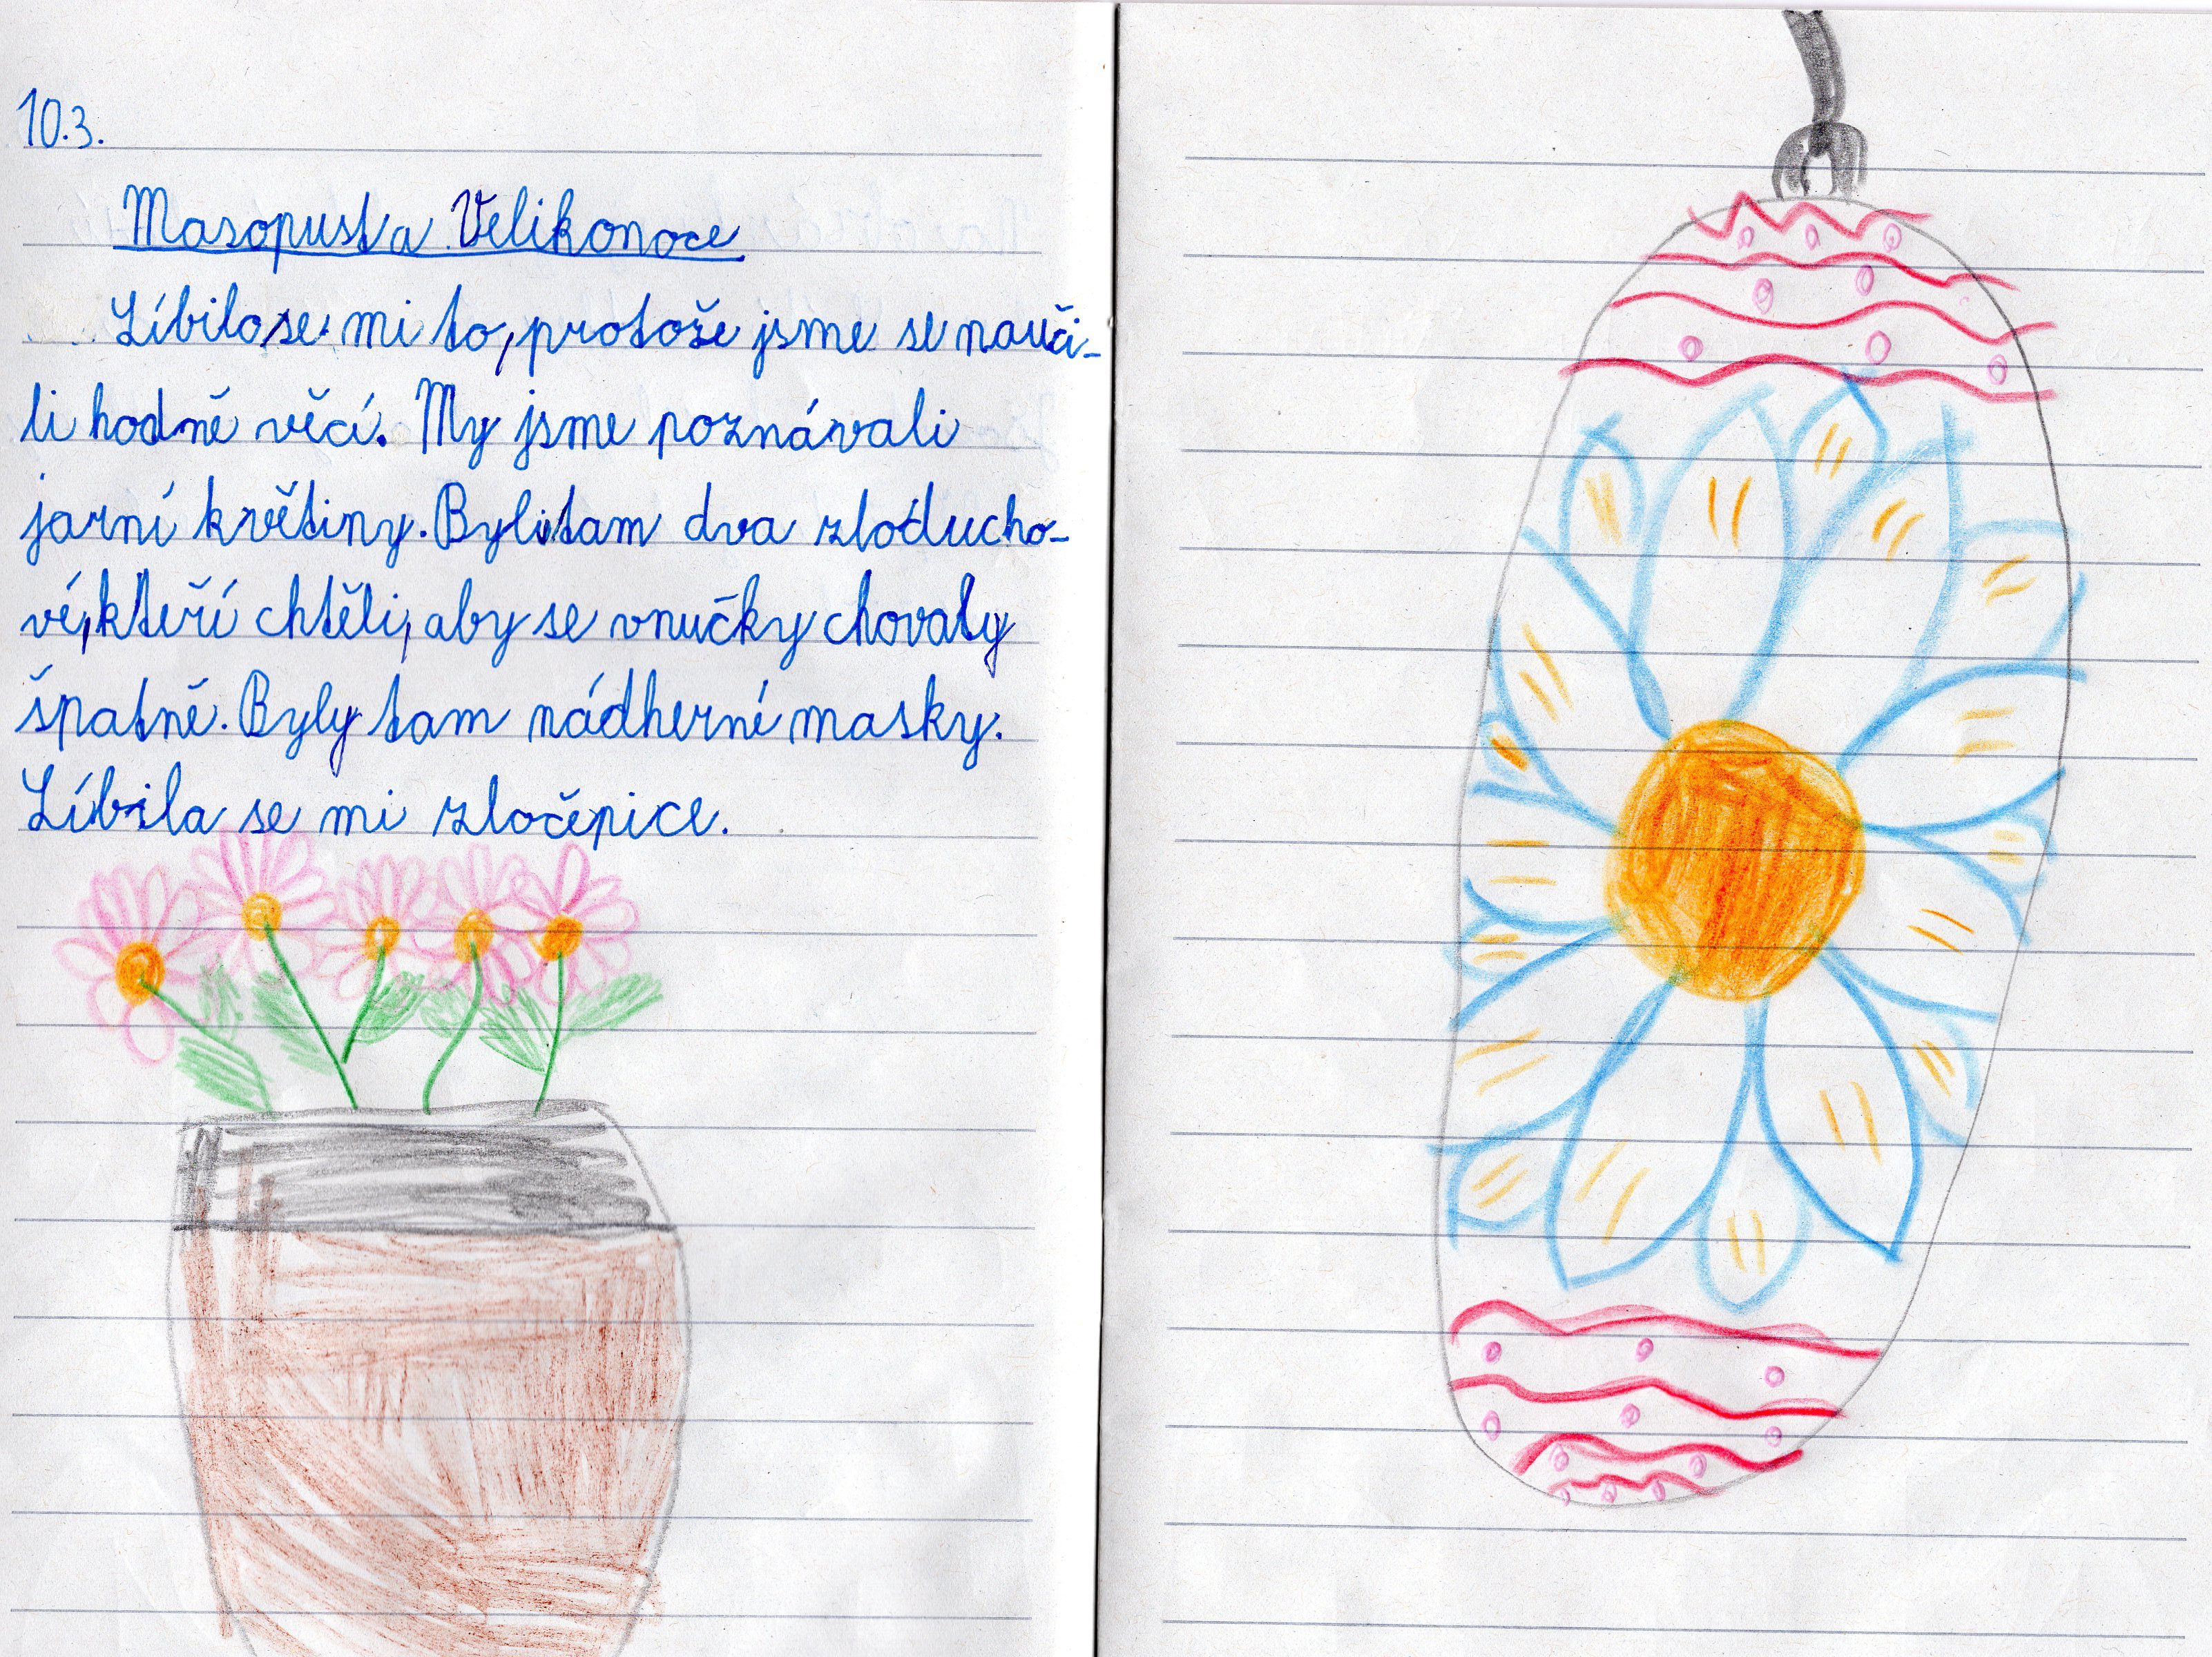 10.3.
Masopust a Velikonoce
Líbilo se mi to, protože jsme se nauči-
li hodně věcí. My jsme poznávali
jarní květiny. Byli tam dva zloducho-
vé, kteří chtěli, aby se vnučky chovaly
špatně. Byly tam nádherné masky.
Líbila se mi zločepice.